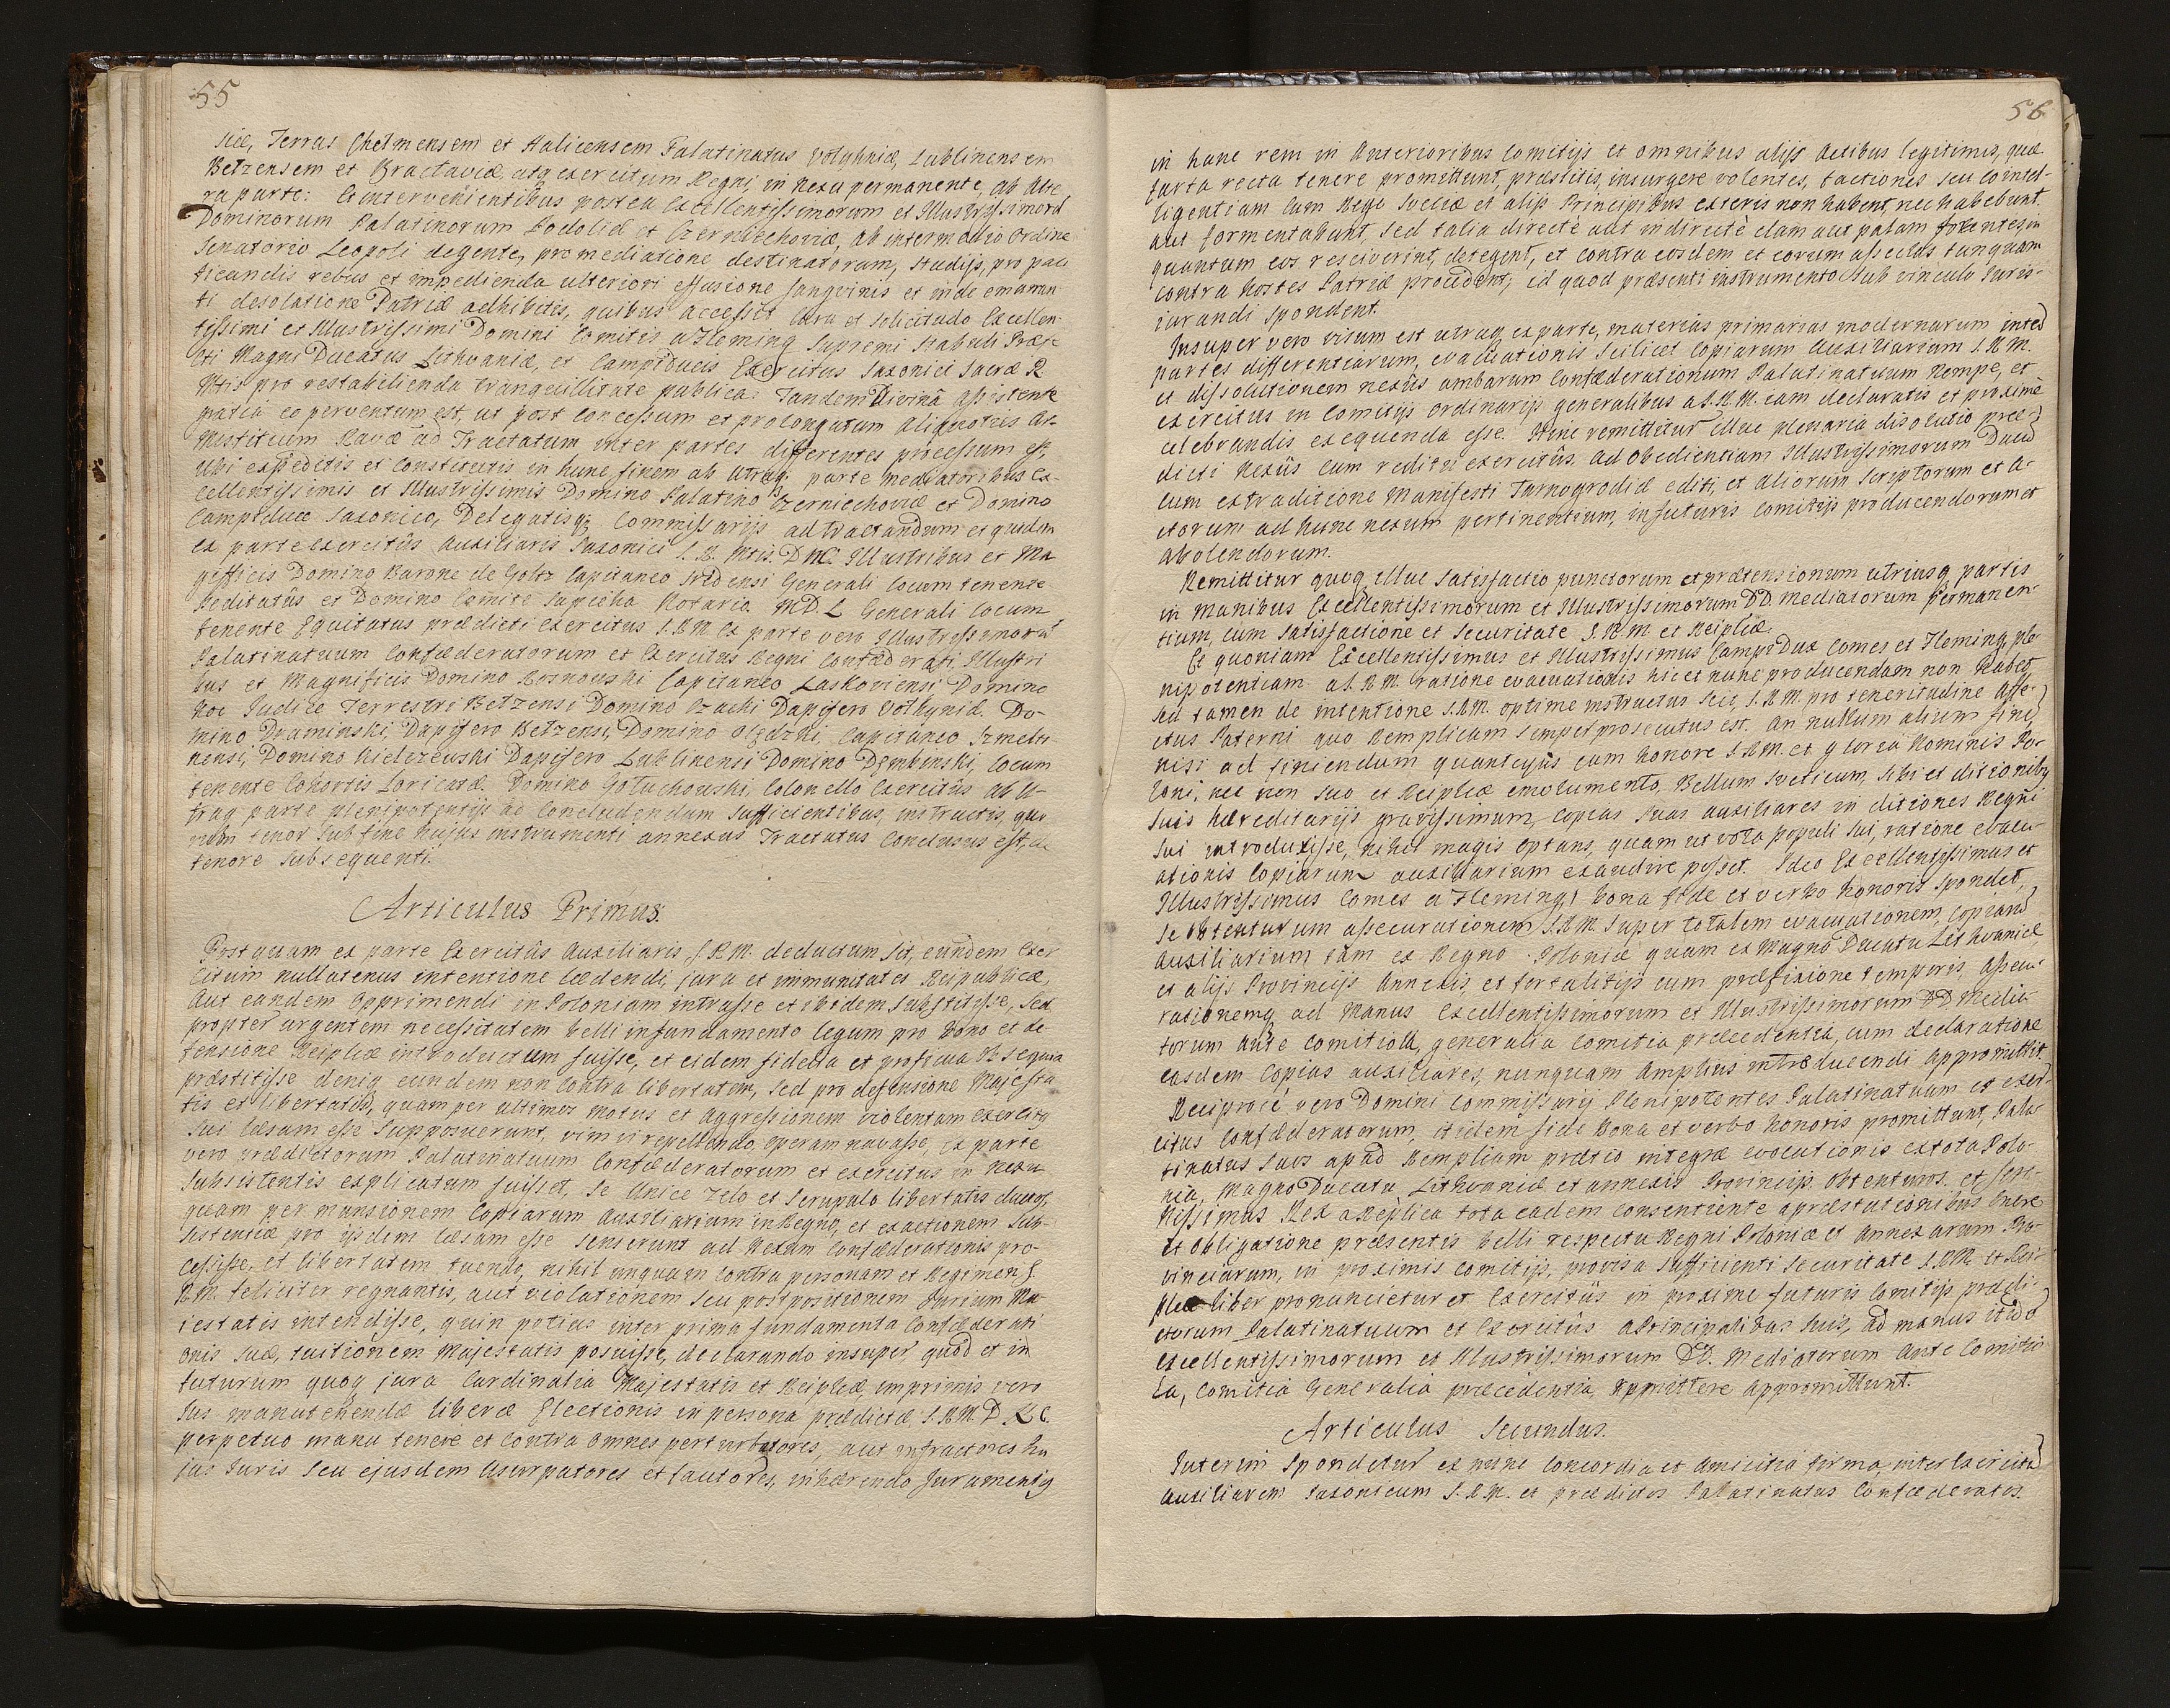 55
siæ, Terras Chelmensem et Halicensem Palatinatus Volyhniæ, Lublinensem
Betzensem et Bractaviæ, atq exercitum Regni, in nexu permanente, ab Alte
ra parte: Et intervenientibus postea Excellentissimorum et Illustrissimorũ
Dominorum Palatinorum Podoliæ et Czerniechoviæ, ab intermedio Ordine
Senatorio Leopoli degente, pro mediatione destinatorum, studijs, pro paci
ficandis rebus et impedienda ulteriori effusione sangvinis et inde emanan
ti desolatione Patriæ adhibitis, quibus accessit cura et solicitudo Excellen
tissimi et Illustrissimi Domini Comitis a Fleming Supremi Stabuli Præfe
cti Magni Ducatus Lithvaniæ, et Campiducis Exercitus Saxonici Sacræ R
Mtis pro restabilienda tranquillitate publica. Tandem Divinâ assistente
gratiâ eo perventum est, ut post concessum et prolongatum aliquoties Ar-
mistitium Ravæ ad Tractatum inter partes differentes processum est,
Ubi expeditis et constitutis in hunc finem ab utraq. parte mediatoribus Ex-
cellentissimis et Illustrissimis Domino Palatino Czerniechoviæ et Domino
Campiduce Saxonico, Delegatisq; Commissarijs ad tractandum et quidem
ex parte exercitûs auxiliaris Saxonici S. R. Mtis. D N C. Illustribus et Ma
gnificis Domino Barone de Goltz Capitaneo Sredensi Generali locum tenente
Peditatûs et Domino Comite Sapieha Notario M D. L Generali locum
tenente Equitatus prædicti exercitus S. R M. Ex parte vero Illustrissimorũ
Palatinatuum Confæderatorum et Exercitus Regni Confæderati, Illustri
bus et Magnificis Domino Rosnowski Capitaneo Laskoviensi Domino
Roe Iudice Terrestri Betzensi Domino Czacki Dapifero Volhyniæ. Do-
mino Draminski, Dapifero Betzensi, Domino Olędzki, Capitaneo Szmelti-
nensi, Domino Kielczewski Dapifero Lublinensi Domino Dembinski, locum
tenente Cohortis Loricatæ. Domino Gołuchowski, Colonello Exercitûs ab u-
traq parte plenipotentijs ad concludendum sufficientibus, instructis, quo
rum tenor sub fine hujus instrumenti annexus Tractatus Conclusus est, de
tenore subsequenti.
Articulus Primus.
Postquam ex parte Exercitûs Auxiliaris, S. R M. deductum sit, eundem Exer
citum nullatenus intentione lædendi, jura et immunitates Reipublicæ,
Aut eandem opprimendi in Poloniam intrasse et ibidem substitisse, sed
propter urgentem necessitatem belli in fundamento legum pro bono et de
fensione Reiplicæ introductum fuisse, et eidem fidelia et proficua obsequia
præstitisse deniq eundem non contra libertatem, sed pro deffensione Majesta
tis et libertatis, quam per ultimos motus et aggressionem violentam exercitq
sui læsam esse supposuerunt, vim vi repellendo operam navasse, ex parte
vero prædictorum Palatinatuum Confæderatorum et exercitus in nexu
subsistentis explicatum fuisset, se Unice Zelo et Scrupulo libertatis ductos,
quam per mansionem Copiarum Auxiliarium in Regno, et exactionem Sub-
sistentiæ pro ijsdem læsam esse senserunt ad Nexum Confæderationis pro-
cessisse, et libertatem tuendo, nihil unquam contra personam et Regimen S.
R. M. feliciter regnantis, aut violationem seu postpositionem Iurium Ma
iestatis intendisse, quin potius inter prima fundamenta Confæderati
onis suæ, tuitionem Majestatis posuisse, declarando insuper, quod et in
futurum quoq jura Cardinalia Majestatis et Reiplicæ, imprimis vero
Ius manutenendæ liberæ Electionis in persona prædictæ S. R M. D N C.
perpetuo manu tenere et contra omnes perturbatores, aut infractores hu
jus Iuris seu ejusdem Usurpatores et fautores, inhærendo Iuramentis
56
in hanc rem in Anterioribus Comitijs et omnibus alijs Actibus legitimis, quæ
sarta recta tenere promittunt, præstitis, insurgere volentes, factiones seu cointel-
ligentiam cum Rege Sveciæ et alijs Principibus exteris non habent, nec habebunt.
aut formentabunt, sed talia directè aut indirectè clam aut palam foventes, in
quantum eos resciverint, detegent, et contra eosdem et eorum asseclas tanquam
contra hostes Patriæ procedent, id quod præsenti instrumento sub vinculo Iuris-
iurandi spondent.
Insuper vero visum est utraq ex parte, materias primarias modernarum inter
partes differentiarum, evacuationis scilicet Copiarum Auxiliarium S. R M.
et dissolutionem nexûs ambarum Confæderationum Palatinatuum nempe, et
exercitus in Comitijs ordinarijs generalibus a S. R. M. iam declaratis et proximè
celebrandis exequenda esse. Hinc remittitur illuc plenaria disolutio præ
dicti nexûs cum reditu exercitûs, ad obedientiam Illustrissimorum Ducũ
cum extraditione Manifesti Tarnogrodiæ editi, et aliorum Scriptorum et a-
ctorum ad hunc nexum pertinentium, in futuris Comitijs producendorum et
abolendorum.
Remittitur quoq illuc satisfactio punctorum et prætensionum utriusq partis
in manibus Excellentissimorum et Illustrissimorum DD. Mediatorum permanen-
tium, cum satisfactione et securitate S. R. M. et Reiplicæ.
Et quoniam Excellentissimus et Illustrissimus Campi Dux Comes et Fleming, ple
nipotentiam a S. R M. ratione evacuationis hic et nunc producendam non habet,
sed tamen de intentione S. R M. optime instructus scit, S. R M. pro teneritudine Affe-
ctus Paterni quo Remplicam semper prosecutus est. An nullum alium finẽ,
nisi ad finiendum quantocyûs cum honore S. R M. et gloria Nominis Po-
loni, nec non suo et Reiplicæ emolumento, Bellum Sveticum, sibi et ditionibq
suis hæreditarijs gravissimum, Copias suas auxiliares in ditiones Regni
sui introduxisse, nihil magis optans, quam ut vota populi sui, ratione evacu-
ationis Copiarum auxiliarium exaudire posset. Ideo Excellentissimus et
Illustrissimus Comes a Fleming, bona fide et verbo honoris spondet,
se obtenturum assecurationem S. R M. super totalem evacuationem, Copiarũ
auxiliarium tàm ex Regno Poloniæ quam ex Magno Ducatu Lithvaniæ,
et alijs Provincijs Annexis, et fortalitijs cum præfixione temporis, Assecu-
rationemq ad Manus Excellentissimorum et Illustrissimorum DD Media-
torum ante Comitiola, generalia Comitia præcedentia, cum declaratione
easdem Copias auxiliares, nunquam Amplius introducendi appromittit.
Reciprocè vero Domini Commissarij Plenipotentes Palatinatuum et exer-
citus Confæderatorum, itidem fide bona et verbo honoris promittunt, Pala-
tinatus suos apud Rempliam prætio integræ evocutionis ex tota Polo-
nia, Magno Ducatu Lithvaniæ et annexis Provincijs obtenturos. et Sere-
nissimus Rex a Replica tota eadem consentiente a præstationibus onere
et obligatione præsentis belli respectu Regni Poloniæ et Annexarum Pro-
vinciarum, in proximis Comitijs, provisa sufficienti securitate S. RM. et Rei-
plicæ liber pronuncietur et Exercitûs in proxime futuris Comitijs prædi-
ctorum Palatinatuum et Exercitûs a Principalibus suis, ad manus itidẽ
excellentissimorum et Illustrissimorum DD. Mediatorum ante Comitio
la, Comitia Generalia præcedentia, appromittunt.
Articulus Secundus.
Interim spondetur ex nunc Concordia et Amicitia firma, inter Exercitũ
auxiliarem Saxonicum S. R M. et prædictos Palatinatus Confæderatos.